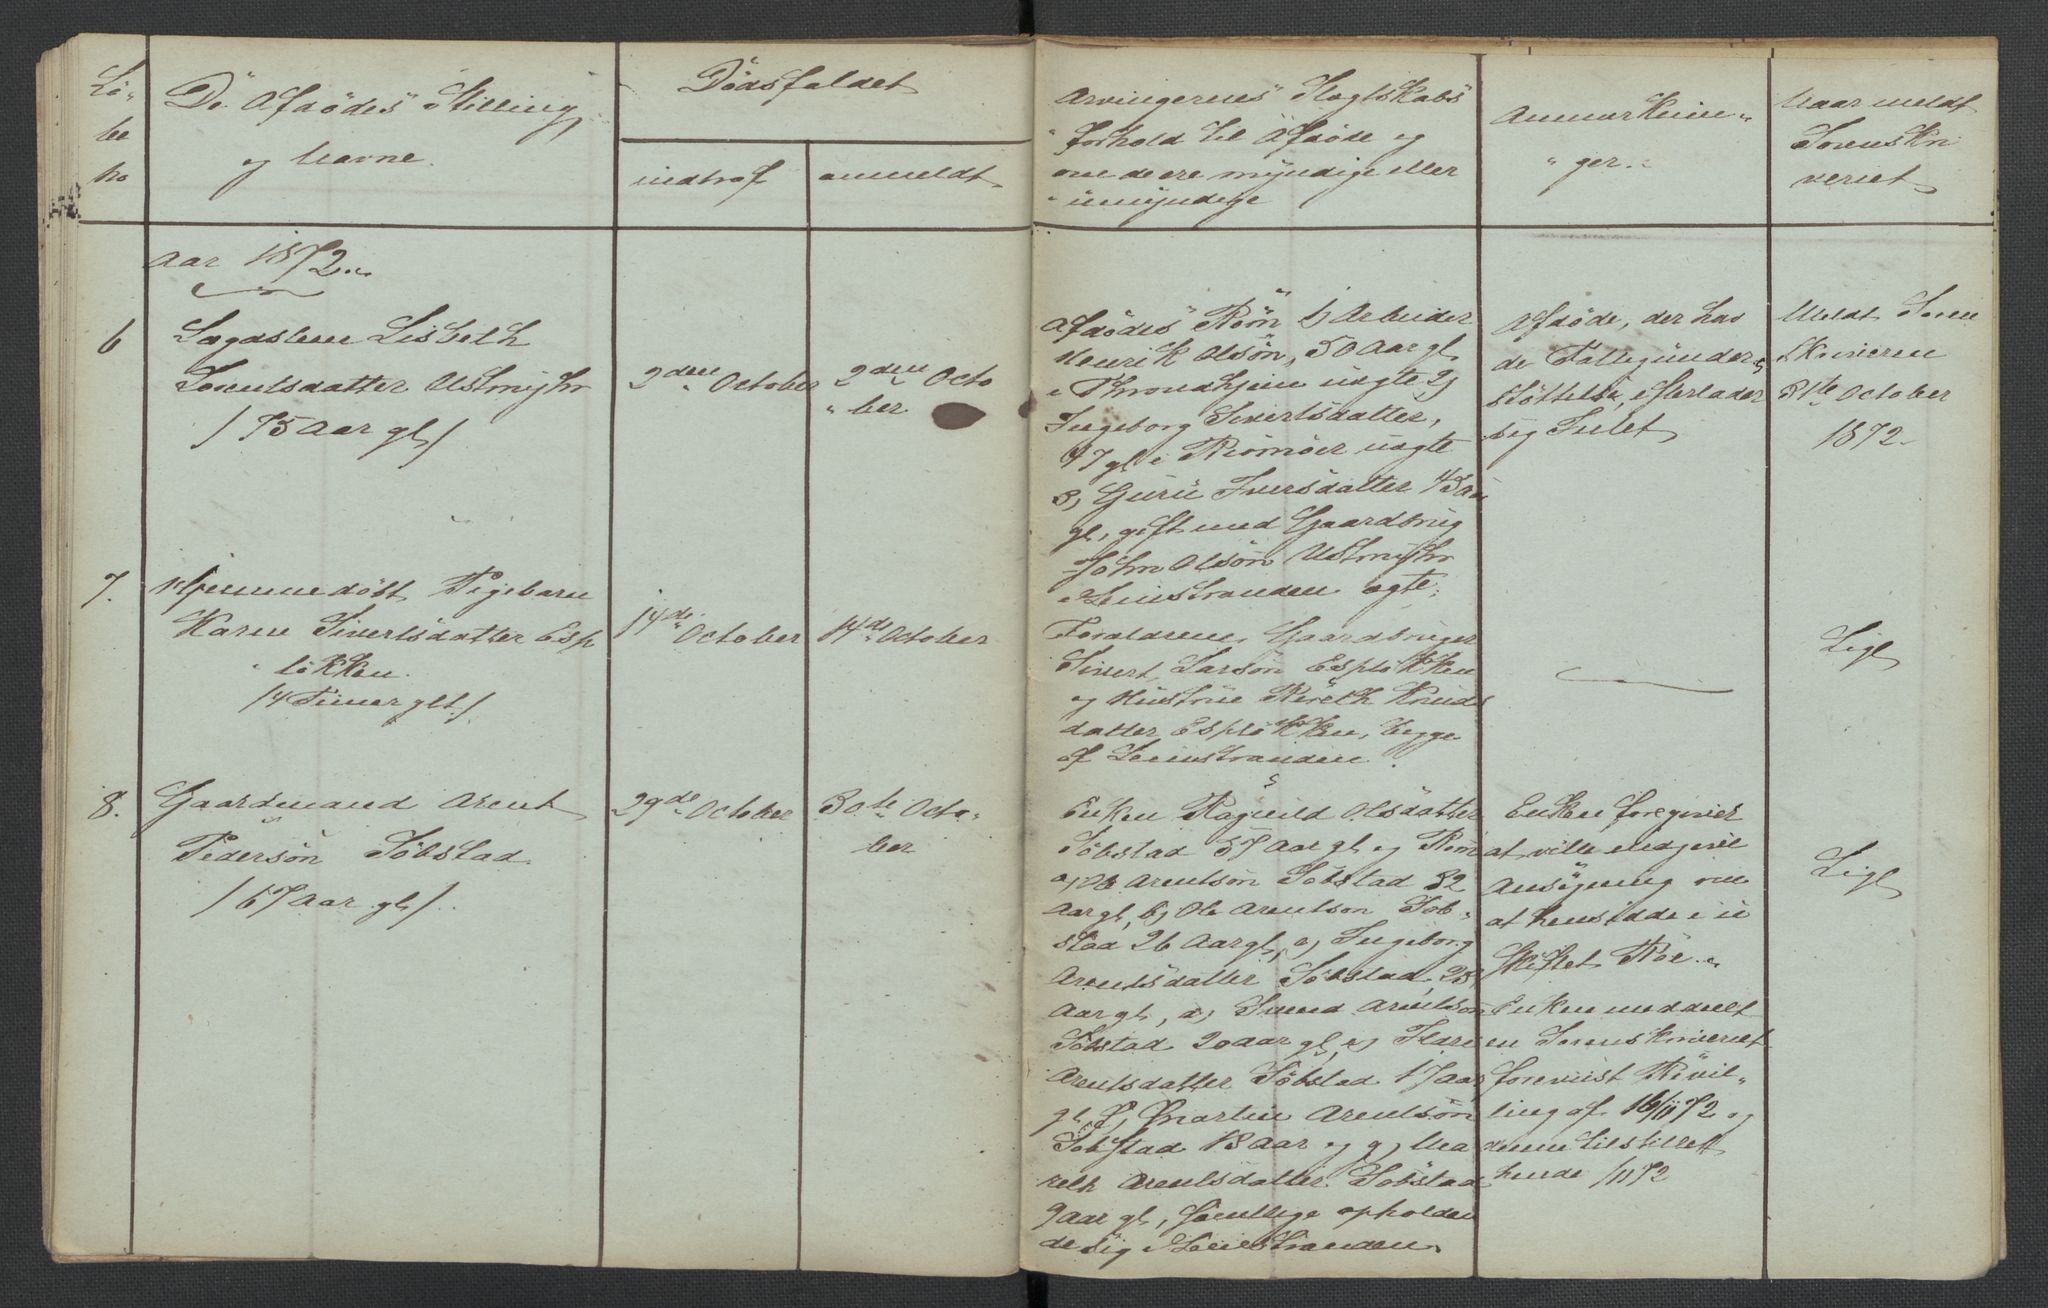 Lö-
be
no
De Afdödes Stilling
og Navne.
Dödsfaldet
indtraf
anmeldt
Arvingernes Slagtskabs
forhold til Afdöde og
om de ere myndige eller
umyndige
Anmærknin-
ger.
Naar meldt
Sorenskri
veriet
Aar 1872.
6
Lægdslem Lisbeth
Lorentsdatter Ustmyhr
/75 Aar gl/
2den October
2den Octo
ber
Afdödes Börn 1) Arbeider
Henrik Olsön, 50 Aar gl,
i Throndhjem uægte 2)
Ingeborg Sivertsdatter,
47 gl i uægte
3, Guru Iversdatter 43 Aar
gl, gift med Gaardbrug
John Olsön Ustmyhr
i Leinstranden ægte;
Afdöde, der hav
de Fattigunder-
stöttelse, efterlader
sig Intet
Meldt Soren
skriveren
31te October
1872
7.
Hjemmedöbt Pigebarn
Karen Sivertsdatter Esp
lökken.
/4 Timer glt/
14de October
14de October
Foraldrene, Gaardbruger
Sivert Larsön Esplökken
og Hustrue Bereth Knuds
datter Esplökken, begge
af Leinstranden.
Lige
8.
Gaardmand Arent
Pedersön Söbstad
/67 Aar gl/
29de October
30te Octo-
ber
Enken Ragnild Olsdatter
Söbstad 57 Aar gl og Börn
a, Ole Arentsön Söbstad 32
Aar gl, b, Ole Arentsön Söb-
stad 26 Aar gl, c, Ingeborg
Arentsdatter Söbstad, 23
Aar gl, d, Arentsön
Söbstad 20 aar gl, e,
Arentsdatter Söbstad 17 Aar
gl, f, Morten Arentsön
Söbstad 13 Aar og g, Ma
reth Arentsdatter Söbstad
9 aar gl, samtlige opholden
de sig i Leinstranden
Enken foregiver
at ville indgive
Ansögning om
at hensidde i u
skiftet Boe.
Enken meddeelt
en Sorenskriveriet
foreviist Bevil-
ling af 16/11 72 og
denne tilstillet
hende /11 72
Lige